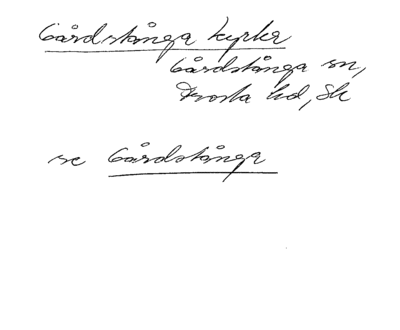 Gårdstånga kyrka
Gårdstånga sn,
Frosta hd, Sk
se Gårdstånga